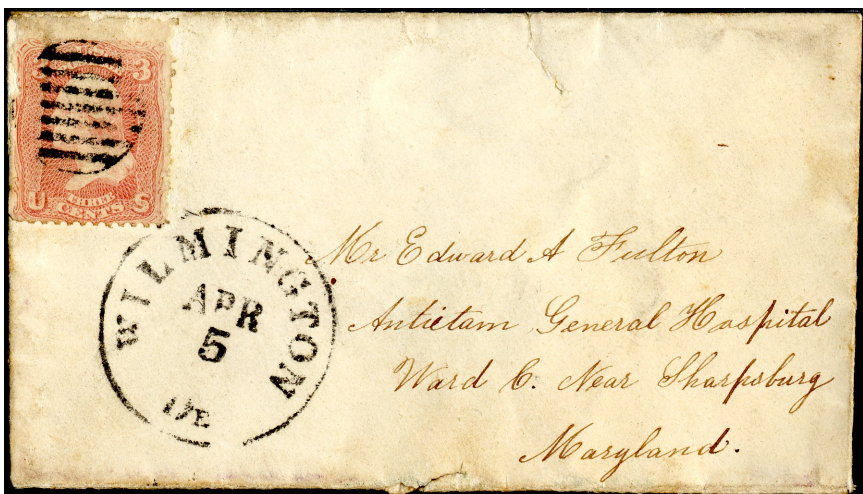 3
U S
THREE
CENTS
WILMINGTON
APR
5
DE
Mr Edward A Fulton
Antietam General Hospital
Ward C. Near Sharpsburg
Maryland.